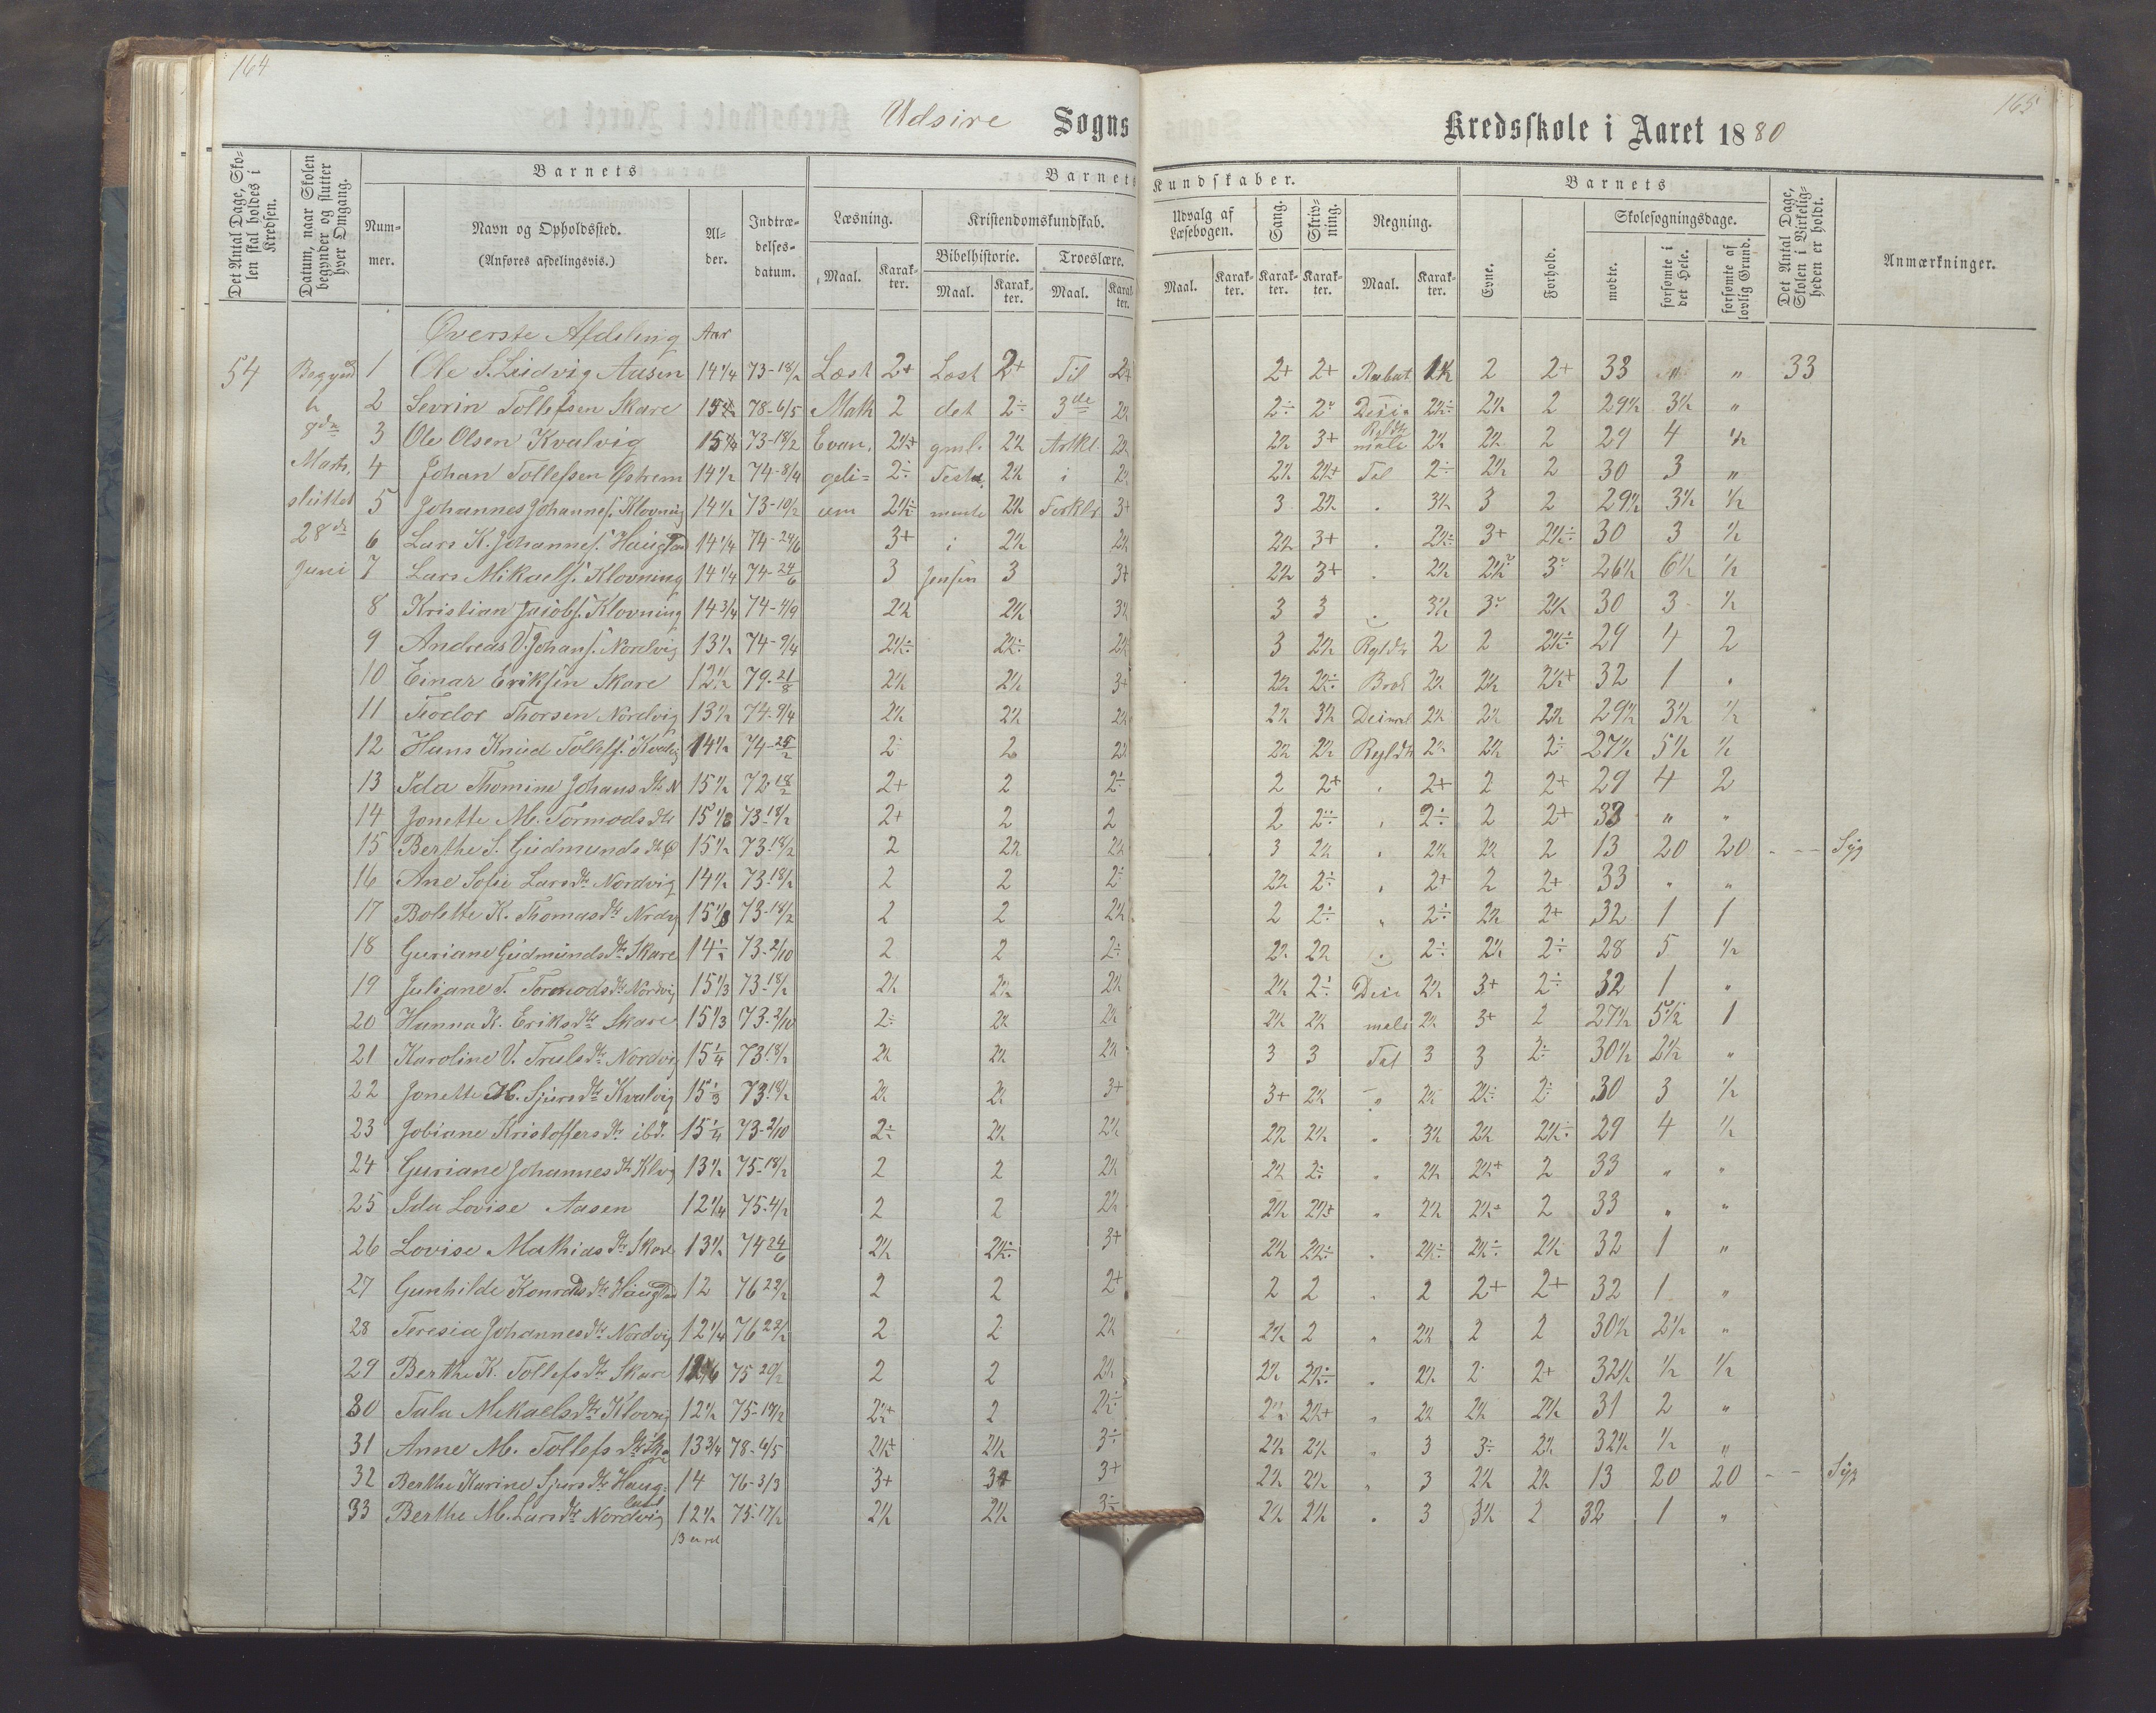 164
165
Udsire Sogns Kredsskole i Aaret 1880
Det Antal Dage, Skolen skal holdes i Kredsen.
Datum, naar Skolen begynder og slutter hver Omgang.
Barnets
Nummer.
Navn og Opholdssted.
(Anføres afdelingsvis.)
Alder.
Indtrædelsesdatum.
Barnets Kundskaber.
Læsning.
Maal.
Karakter.
Kristendomskundskab.
Bibelhistorie.
Maal.
Karakter.
Troeslære.
Maal.
Karakter.
Udvalg af Læsebogen.
Maal.
Karakter.
Sang.
Karakter.
Skrivning.
Karakter.
Regning.
Maal.
Karakter.
Barnets
Evne.
Forhold.
Skolesøgningsdage.
mødte.
forsømte i det Hele.
forsømte af lovlig Grund.
Det Antal Dage, Skolen i Virkeligheden er holdt.
Anmærkninger.
Øverste Afdeling Aar
54 1 Ole S. Ludvig Aasen 14 1/4 73-18/2 Læst 2+ Læst 2+ Til 2+ 2+ 2+ Rabat 2 2+ 33 " 33
2 Sevrin Tollefsen Skare 78-6/5 Math 2 det 2÷ 3de 2÷ 2 1/2 2 29 1/2 3 1/2 "
8de 3 Ole Olsen Kvalvig 73-18/2 Evan. 2 1/2+ gml. 2 1/2 Artkl. 2 1/2 3+ 2 1/2 2 1/2 2 29 4 1/2
Marts, 4 Johan Tollefsen Østrem 14 1/2 74-8/4 geli= 2÷ 2 1/2 i 2 1/2 2 1/2+ Tal 2÷ 2 1/2 2 30 3 "
sluttet 5 Johannes Johannes. Klovning 14 1/2 73-10/2 um 2 1/2÷ mente 2 1/2 Forklr 3+ 3 2 1/2 " 3 1/2 3 2 29 1/2 3 1/2 1/2
28de 6 Lars K. Johannes. Haugland 14 1/4 74-24/6 3+ i 2 1/2 2 1/2 2 1/2 3+ " 2 1/2÷ 3+ 2 1/2÷ 30 3 1/2
Juni 7 Lars Mikaels. Klovning 14 1/4 74-24/6 3 Jensen 3 3+ 2 1/2 3+ " 2 1/2 2 1/2 3 26 1/2 6 1/2 1/2
8 Kristian Jakobs. Klovning 14 3/4 74-4/9 2 1/2 2 1/2 3 1/2 3 3 " 3 1/2 3 2 1/2 30 3 1/2
9 Andreas V. Johans. Nordvig 13 1/2 74-9/4 2 1/2÷ 2 1/2÷ 2 1/2 3 2 1/2 Rgldtr 2 2 2 1/2÷ 29 4 2
10 Einar Eriksen Skare 12 1/2 79-21/8 2 1/2 2 1/2 3+ 2 1/2 2 1/2÷ Brøk 2 1/2 2 1/2 2 1/2+ 32 1 "
11 Teodor Thorsen Nordvig 13 1/2 74-9/4 2 1/2 2 1/2 2 1/2 2 1/2 3 1/2 Decimal 2 1/2 2 1/2 2 1/2 29 1/2 3 1/2 1/2
12 Hans Knud Tollefs. Kvalvig 14 1/2 74-25/2 2÷ 2 2 1/2 2 1/2 2 1/2 Rgldtr 2 1/2 2 1/2 2÷ 27 1/2 5 1/2 1/2
13 Ida Thomine Johans dtr N 15 1/2 72-18/2 2+ 2 2÷ 2 2+ " 2+ 2 2+ 29 4 2
14 Jonette M. Tormods dtr 15 1/3 73-18/2 2+ 2 2 2 2÷ " 2÷ 2 2+ 33 " "
15 Berthe S. Gudmunds dtr 15 1/2 73-18/2 2 2 1/2 2 1/2 3 2 1/2 " 2 1/2 2 1/2 2 13 20 20 Syg
16 Ane Sofie Lars dtr Nordvig 14 1/2 73-18/2 2 2 2÷ 2 1/2 2÷ " 2+ 2 2+ 33 " "
17 Bolette K. Thomas dtr Nrdvg 15 1/3 73-18/2 2 2 2 1/2 2 2÷ " 2÷ 2 1/2 2+ 32 1 1
18 Guriane Gudmunds dtr Skare 14 1/2 73-2/10 2 2 2÷ 2 1/2 2 1/2 " 2÷ 2 1/2 2÷ 28 5 1/2
19 Juliane T. Tormods dtr Nordvig 15 1/3 73-18/2 2 1/2 2 1/2 2 1/2 2 1/2 2÷ Deci 2 1/2 3+ 2÷ 32 1 "
20 Hanna K. Eriks dtr Skare 15 1/3 73-2/10 2÷ 2 1/2 2 1/2 2 1/2 2 1/2 male 2 1/2 3+ 2 27 1/2 5 1/2 1
21 Karoline V. Truls dtr Nordvig 15 1/4 73-18/2 2 1/2 2 1/2 2 1/2 3 3 Tal 3 3 2÷ 30 1/2 2 1/2 "
22 Jonette H. Sjurs dtr Kvalvig 15 1/3 73-18/2 2 1/2 2 1/2 3+ 3+ 2 1/2 " 2 1/2 2 1/2÷ 2÷ 30 3 1/2
23 Jobiane Kristoffers dtr ibd. 15 1/4 73-2/10 2÷ 2 1/2 2 1/2 2 1/2 2 1/2 " 3 1/2 2 1/2 2 1/2÷ 29 4 1/2
24 Guriane Johannes dtr Klvg 13 1/2 75-18/2 2 2 2 1/2 2 1/2 2÷ " 2 1/2 2 1/2+ 2 33 " "
25 Ida Lovise Aasen 12 1/4 75-4/2 2 2 2 1/2 2 1/2 2 1/2+ " 2 1/2 2 1/2+ 2 33 " "
26 Lovise Mathias dtr Skare 13 1/2 74-24/6 2 1/2 2 1/2÷ 3+ 2 1/2 2 1/2÷ " 2 1/2÷ 2 1/2÷ 2 1/2 32 1 "
27 Gunhilde Konrads dtr Haugland 12 76-22/2 2 2 2+ 2 2 " 2 2+ 2+ 32 1 "
28 Teresia Johannes dtr Nordvig 12 1/4 76-22/2 2 2 2 1/2 2 1/2 2 " 2 1/2 2 2 30 1/2 2 1/2 "
29 Berthe K. Tollefs dtr Skare 75-20/2 2 2 2 1/2 2 1/2 2 1/2÷ " 2 1/2 2 2+ 32 1/2 1/2 1/2
30 Tala Mikaels dtr Klovng 12 1/2 75-18/2 2 1/2+ 2 2 1/2÷ 2 1/2 2 1/2+ " 2 1/2 2 1/2 2 1/2 31 2 "
31 Anne M. Tollefs dtr Ska 13 3/4 78-6/5 2 1/2+ 2 1/2 3÷ 2 1/2 2 1/2 " 3 3÷ 2 1/2 32 1/2 1/2 "
32 Berthe Karine Sjurs dtr Haugland 14 76-3/3 3+ 3+ 3+ 2 1/2 2 1/2 " 3 2 1/2 2 1/2 13 20 20 Syg
33 Berthe M. Lars dtr Nordvig 12 1/2 75-17/2 2 1/2 2 1/2 3÷ 2 1/2 2 1/2 " 3 3 1/2 2 32 1 "